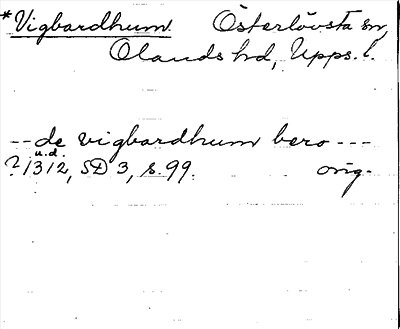 *Vigbardhum. Österlövsta sn,
Olands hd, Upps. l.
-- de vigbardhum bero ---
u.d.
? 1312, SD 3, s. 99. orig.